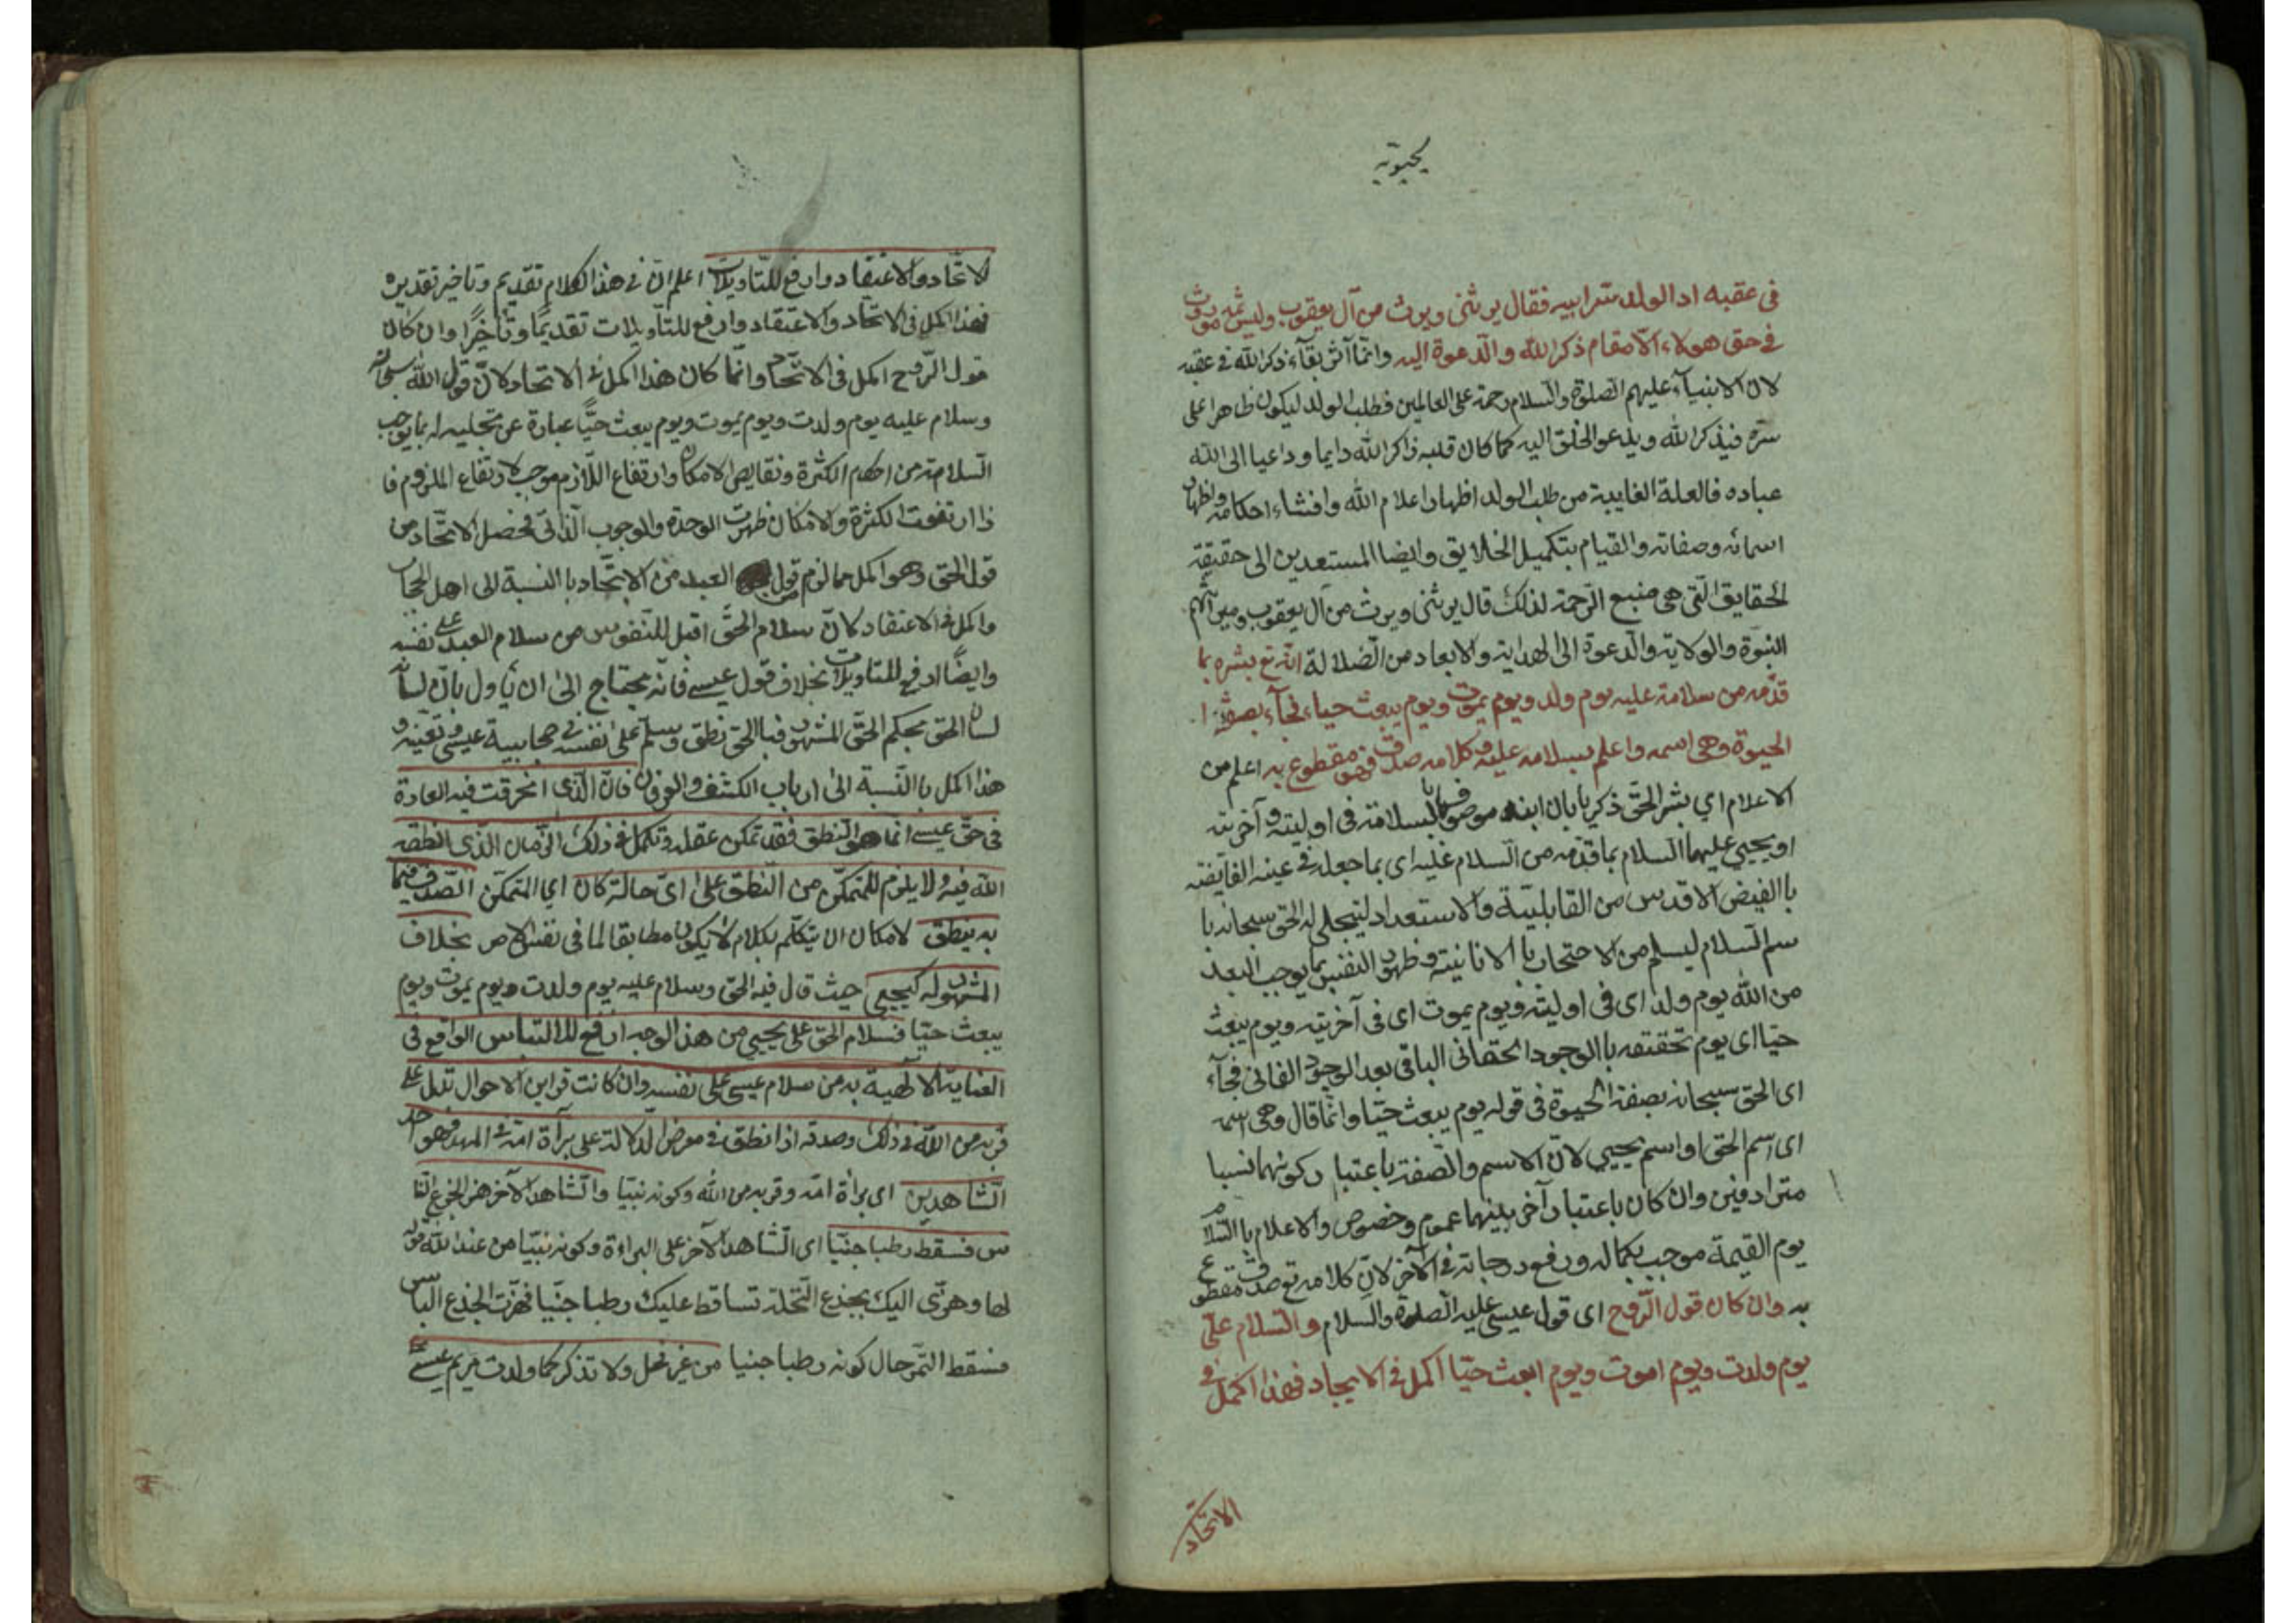 يحيوية
فى عقبه اذ الولد سر ابيه فقال يرثنى ويرث من آل يعقوب وليس ثمة موروث
فى حق هولاء الا مقام ذكر الله والدعوة اليه وانما آثر بقآء ذكر الله فى عقبه
لان الانبيآء عليهم الصلوة والسلام رحمة على العالمين فطلب الولد ليكون ظاهرا على
سره فيذكر الله ويدعو الخلق اليه كما كان قلبه ذاكرا لله دايما وداعيا الى الله
عباده فالعلة الغايية من طلب الولد اظهار اعلام الله وافشاء احكامه واظهار
اسمائه وصفاته والقيام بتكميل الخلايق وايضا المستعدين الى حقيقة
الحقايق التى هى منبع الرحمة لذلك قال يرثنى ويرث من آل يعقوب وميراثهم
النبوة والولاية والدعوة الى الهداية والابعاد من الضلالة انه تع بشره بما
قدمه من سلامة عليه يوم ولد ويوم يموت ويوم يبعث حياء فجآء بصفة ا
الحيوة وهى اسمه واعلم بسلامه عليه وكلامه صدق فهو مقطوع به اعلم من
الاعلام اي بشر الحق ذكريا بان ابنه موصوفا بالسلامة فى اوليته وآخريته
او يحيي عليهما السلام بما قدمه من السلام عليه اى بما جعله فى عينه الفايضة
با الفيض الاقدس من القابلية والاستعداد ليتجلى له الحق سبحانه با
سم السلام ليسلم من الاحتجاب با الانانية وظهور النفس بما يوجب البعد
من الله يوم ولد اى فى اوليته ويوم يموت اى فى آخريته ويوم يبعث
حيا اى يوم تحققه با الوجود الحقانى الباقى بعد الوجود الفانى فجآء
اى الحق سبحانه بصفة الحيوة فى قوله يوم يبعث حيا وانما قال وهى اسمه
اى اسم الحق او اسم يحيي لان الاسم والصفة باعتبا ر كونهما نسبا
مترادفين وان كان باعتبار آخر بينهما عموم وخصوص والاعلام با السلام
يوم القيمة موجب بكماله ورفع درجاته فى الآخر لان كلامه تع صدق مقطوع
به وان كان قول الروح اى قول عيسى عليه الصلوة والسلام والسلام على
يوم ولدت ويوم اموت ويوم ابعث حيا اكمل فى الايجاد فهذا اكمل فى
الاتحاد
لاتحاد والاعتقاد وارفع للتاويلات اعلم ان فى هذا الكلام تقديم وتاخير تقديره
فهذا اكمل فى الاتحاد والاعتقاد وارفع للتاويلات تقديما وتاخرا وان كان
قول الروح اكمل فى الاتحاد وانما كان هذا اكمل فى الاتحاد لان قول الله سبحانه
وسلام عليه يوم ولدت ويوم يموت ويوم يبعث حيا عبارة عن تجليه له بما يوجب
السلامة من احكام الكثرة ونقايص الامكان وارتفاع اللازم موجب لارتفاع الملزوم فا
ذا ارتفعت الكثرة والامكان ظهرت الوحدة والوجوب الذاتى فحصل الاتحاد من
قول الحق وهو اكمل مما لزم من قول العبد من الاتحاد با النسبة الى اهل الحجاب
واكمل فى الاعتقاد لان سلام الحق اقبل للنفوس من سلام العبد على نفسه
وايضا ارفع للتاويلات بخلاف قول عيسى فانه يحتاج الى ان يأول بان لسانه
لسان الحق بحكم الحق المشهور فبا الحق نطق وسلم على نفسه فى حجابية عيسى وتعينه و
هذا اكمل با النسبة الى ارباب الكشف والعرفان فان الذى انخرقت فيه العادة
فى حق عيسى انما هو النطق فقد تمكن عقله وتكمل فى ذلك الزمان الذى انطقه
الله فيه ولا يلزم للمتمكن من النطق على اى حالة كان اي المتمكن الصدق فيما
به ينطق لامكان ان يتكلم بكلام لا يكون مطابقا لما فى نفس الامر بخلاف
المشهود له كيحيى حيث قال فيه الحق وسلام عليه يوم ولدت ويوم يموت ويوم
يبعث حيا فسلام الحق على يحيي من هذا الوجه ارفع للالتباس الواقع فى
العناية الالهية به من سلام عيسى على نفسه وان كانت قراين الاحوال تدل على
قربه من الله فى ذلك وصدقه اذا نطق فى معرض الدلالة على برآة امه فى المهد فهو احد
الشاهدين اى براة امه وقربه من الله وكونه نبيا والشاهد الآخر هز الجذع اليا
بس فسقط رطبا جنيا اى الشاهد الآخر على البراءة وكونه نبيا من عند الله قوله
لها وهزى اليك بجذع النخلة تساقط عليك رطبا جنيا فهزت الجذع اليابس
فسقط التمر حال كونه رطبا جنيا من غير فحل ولا تذكر كما ولدت مريم عيسى